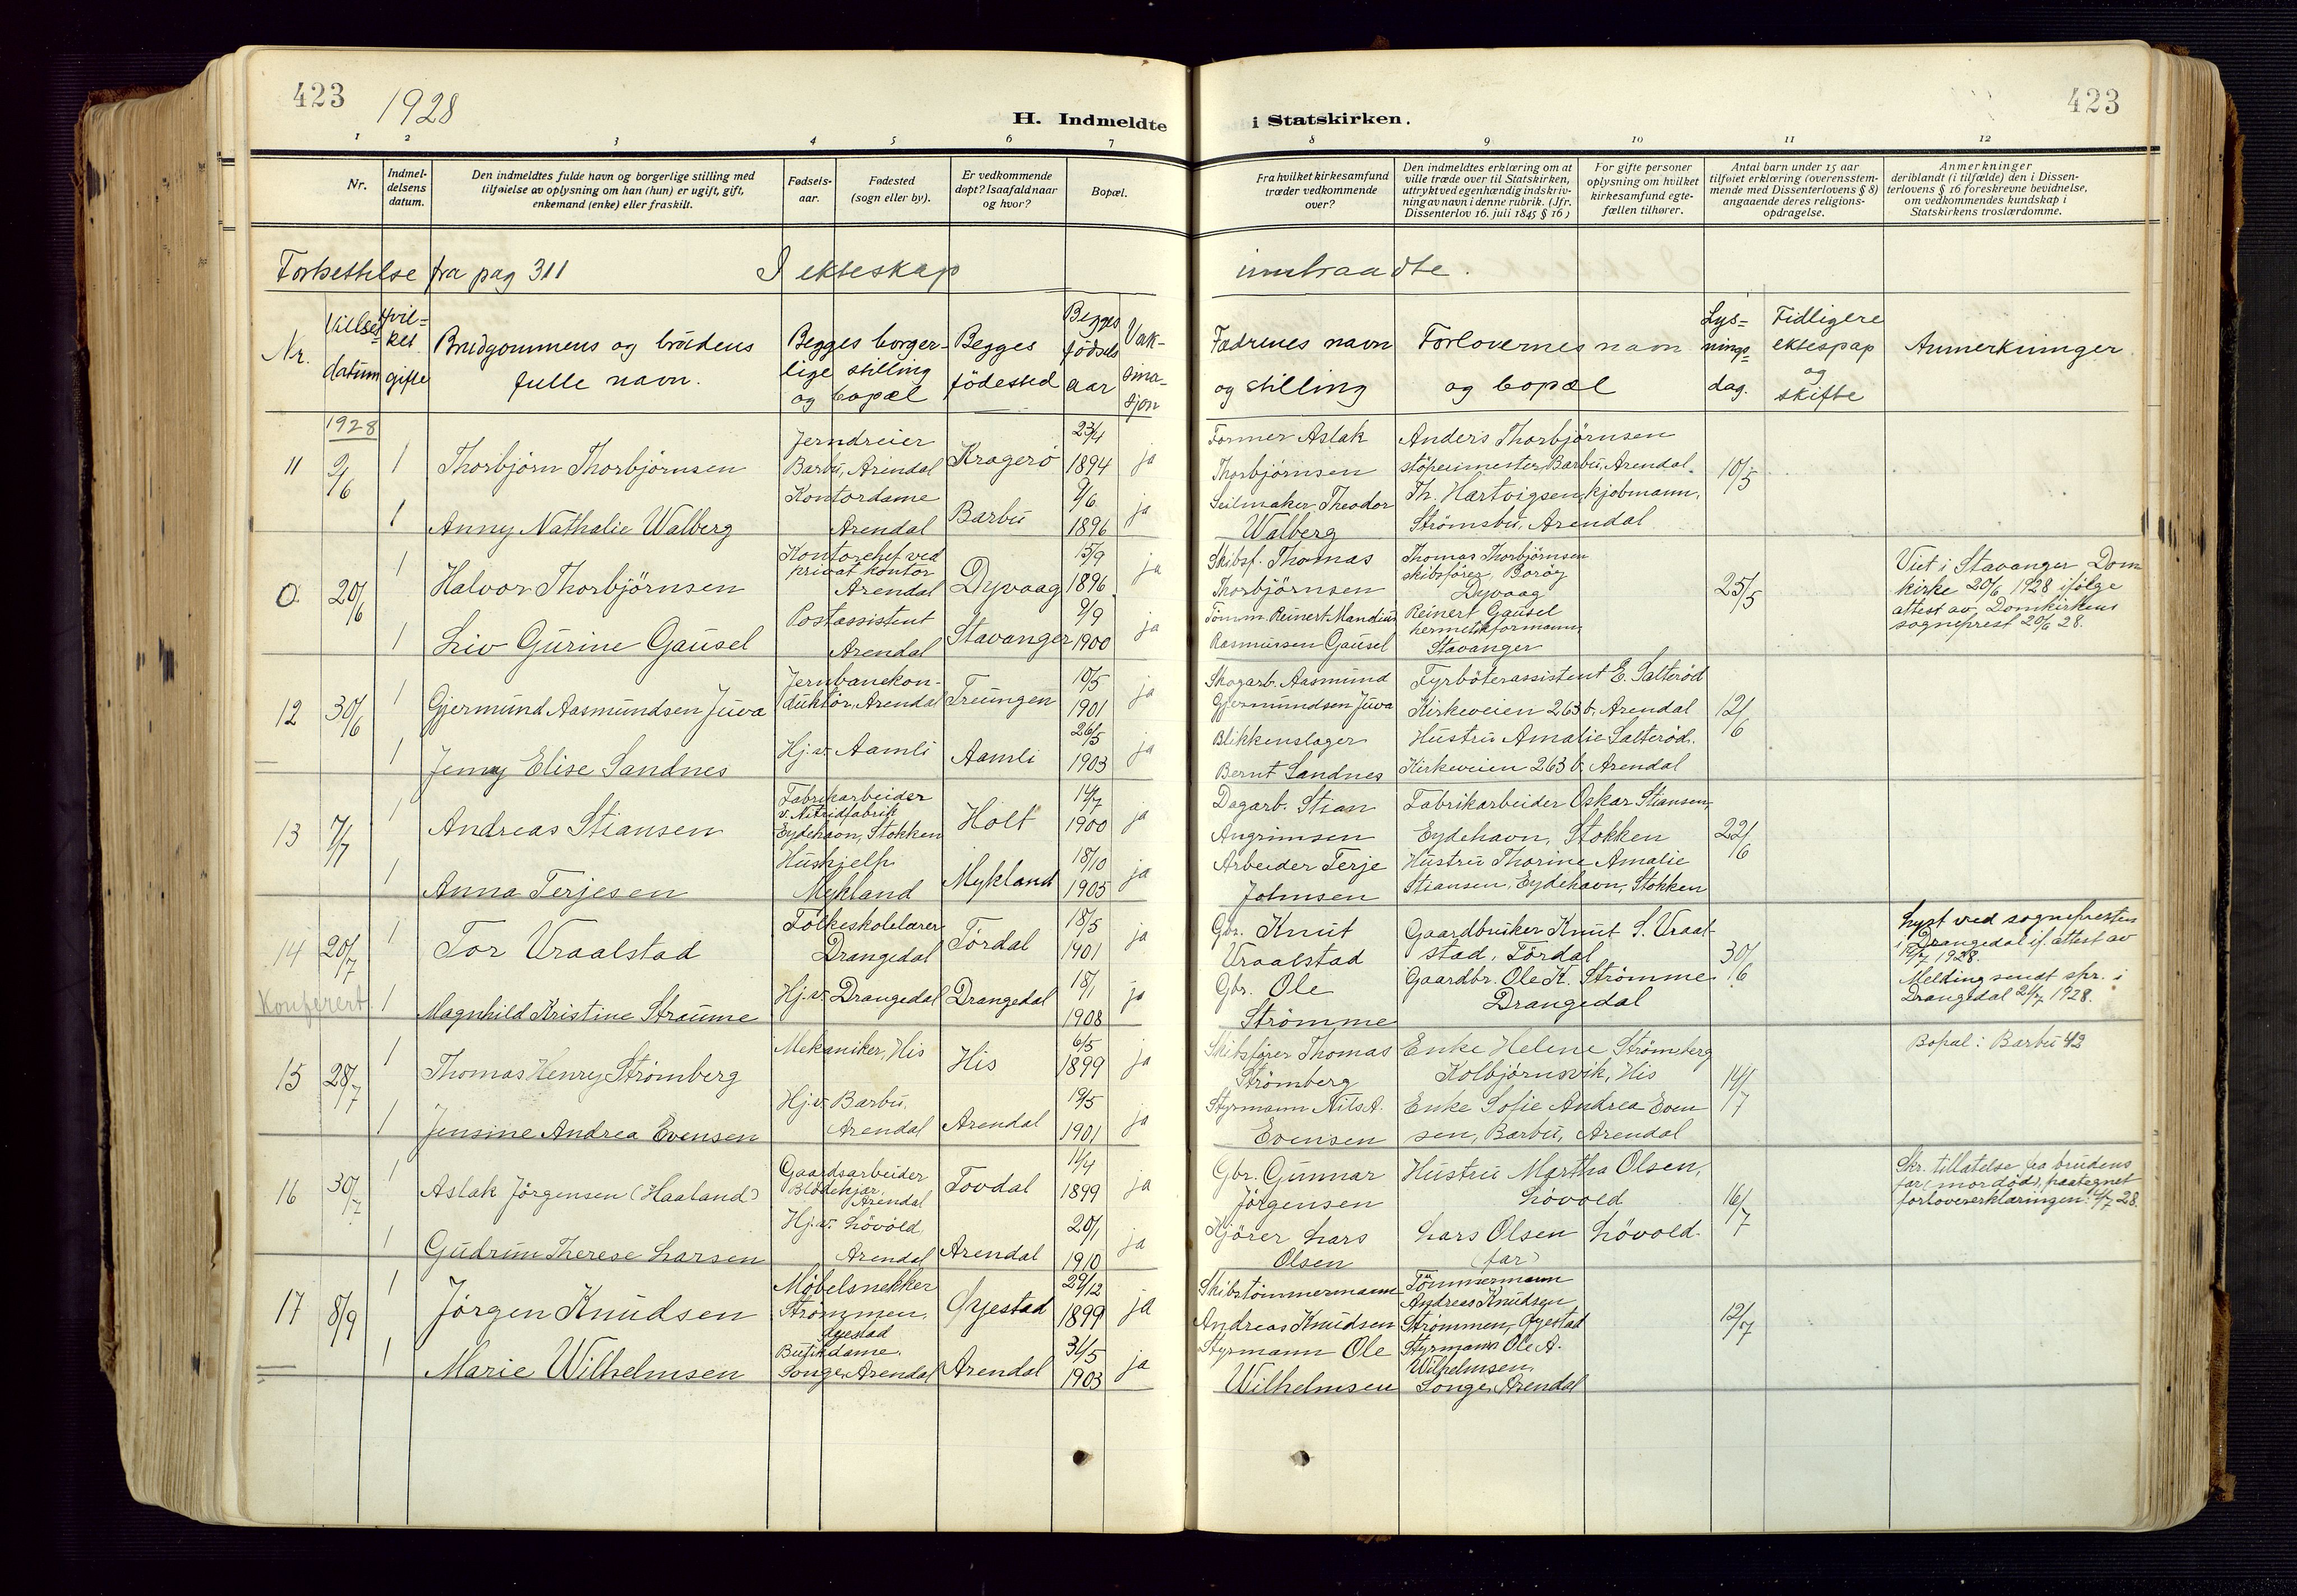 423
1928
H. Indmeldte
i Statskirken.
423
1 2 3 4 5 6 7
8 9 10 11 12
Nr.
Indmel-
delsens
datum.
Den indmeldtes fulde navn og borgerlige stilling med
tilføielse av oplysning om han (hun) er ugift, gift,
enkemand (enke) eller fraskilt.
Fødsels-
aar.
Fødested
(sogn eller by).
Er vedkommende
døpt? Isaafald naar
og hvor?
Bopæl.
Fra hvilket kirkesamfund
træder vedkommende
over?
Den indmeldtes erklæring om at
ville træde over til Statskirken,
uttrykt ved egenhændig indskriv-
ning av navn i denne rubrik. (Jfr.
Dissenterlov 16. juli 1845 § 16)
For gifte personer
oplysning om hvilket
kirkesamfund egte-
fællen tilhører.
Antal barn under 15 aar
tilføiet erklæring (overensstem-
mende med Dissenterlovens § 8)
angaaende deres religions-
opdragelse.
Anmerkninger
deriblandt (i tilfælde) den i Dissen-
terlovens § 16 foreskrevne bevidnelse,
om vedkommendes kundskap i
Statskirkens troslærdomme.
Fortsettelse fra pag 311 I ekteskap inntraadte.
Nr.
Vielses
datum
Hvil-
ket
gifte
Brudgommens og brudens
fulle navn.
Begges borger-
lige stilling
og bopæl
Begges
födested
Begges
födsels
aar
Vak-
sina-
sjon
Fædrenes navn
og stilling
Forlovernes navn
og bopæl
Lys-
nings-
dag.
Tidligere
ekteskap
og
skifte
Anmerkninger
1928
11 9/6 1 Thorbjörn Thorbjörnsen
Jerndreier
Barbu, Arendal
Kragerö
23/4
1894
ja
Former Aslak
Thorbjörnsen
Anders Thorbjörnsen
stöperimester, Barbu, Arendal.
10/5
1 Anny Nathalie Walberg
Kontordame
Arendal
Barbu
9/6
1896
ja
Seilmaker Theodor
Walberg
Th. Hartvigsen, kjöbmann,
Strömsbu, Arendal
0. 20/6 1 Halvor Thorbjörnsen
Kontorchef ved
privat kontor
Arendal
Dyvaag
15/9
1896
ja
Skibsf. Thomas
Thorbjörnsen
Thomas Thorbjörnsen
skibsförer, Boröy
Dyvaag
25/5
Viet i Stavanger Dom
kirke 20/6 1928 ifölge
attest av Domkirkens
sogneprest 20/6 28.
1 Liv Gurine Gausel
Postassistent
Arendal
Stavanger
9/9
1900
ja
Tömm. Reinert Mandius
Rasmussen Gausel
Reinert Gausel
hermetikformann
Stavanger
12 30/6 1 Gjermund Aasmundsen Juva
Jernbanekon-
duktör, Arendal
Treungen
10/5
1901
ja
Skogarb. Aasmund
Gjermundsen Juva
Fyrböterassistent E. Salteröd
Kirkeveien 263 b, Arendal
12/6
1 Jenny Elise Sandnes
Hj. v. Aamli
Aamli
26/5
1903
ja
Blikkenslager
Bernt Sandnes
Hustru Amalie Salteröd.
Kirkeveien 263 b, Arendal
13 7/7 1 Andreas Stiansen
Fabrikarbeider
v. Nitridfabrik
Eydehavn, Stokken
Holt
14/7
1900
ja
Dagarb. Stian
Angrimsen
Fabrikarbeider Oskar Stiansen,
Eydehavn, Stokken
22/6
1 Anna Terjesen
Hushjelp
Mykland
Mykland
18/10
1905
ja
Arbeider Terje
Johnsen
Hustru Thorine Amalie
Stiansen, Eydehavn, Stokken
14 20/7 1 Tor Uraalstad
Folkeskolelærer
Drangedal
Tördal
18/5
1901
ja
Gbr. Knut
Uraalstad
Gaardbruker Knut S. Uraal-
stad, Tördal
30/6
Lyst ved sognepresten
i Drangedal if. attest av
19/7 1928.
Melding sendt spr. i
Drangedal 21/7 1928.
Konferert. 1 Magnhild Kristine Straume
Hj. v. Drangedal
Drangedal
18/1
1908
ja
Gbr. Ole
Strömme
Gaardbr. Ole K. Strömme
Drangedal
15 28/7 1 Thomas Henry Strömberg
Mekaniker, His
His
6/5
1899
ja
Skibsförer Thomas
Strömberg
Enke Helene Strömberg
Kolbjörnsvik, His
14/7
Bopæl: Barbu 42
1 Jensine Andrea Evensen
Hj. v. Barbu,
Arendal
Arendal
19/5
1901
ja
Styrmann Nils A.
Evensen
Enke Sofie Andrea Even
sen, Barbu, Arendal
16 30/7 1 Aslak Jörgensen (Haaland)
Gaardsarbeider
Blödekjær
Arendal
Tovdal
11/4
1899
ja
Gbr. Gunnar
Jörgensen
Hustru Martha Olsen,
Lövold
16/7
Skr. tillatelse fra brudens
far (mor död), paategnet
forlovererklæringen 4/7 28.
1 Gudrun Therese Larsen
Hj. v. Lövold
Arendal
Arendal
20/1
1910
ja
Kjörer Lars
Olsen
Lars Olsen Lövold.
(far)
17 8/9 1 Jörgen Knudsen
Möbelsnekker
Strömmen,
Øyestad
Øyestad
29/12
1899
ja
Skibstömmermann
Andreas Knudsen
Tömmermann
Andreas Knudsen
Strömmen, Øyestad
12/7
1 Marie Wilhelmsen
Butikdame
Songe, Arendal
Arendal
31/5
1903
ja
Styrmann Ole
Wilhelmsen
Styrmann Ole A.
Wilhelmsen,
Songe, Arendal